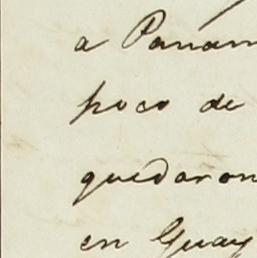 a Panam
poco de
quedaron
en Guay